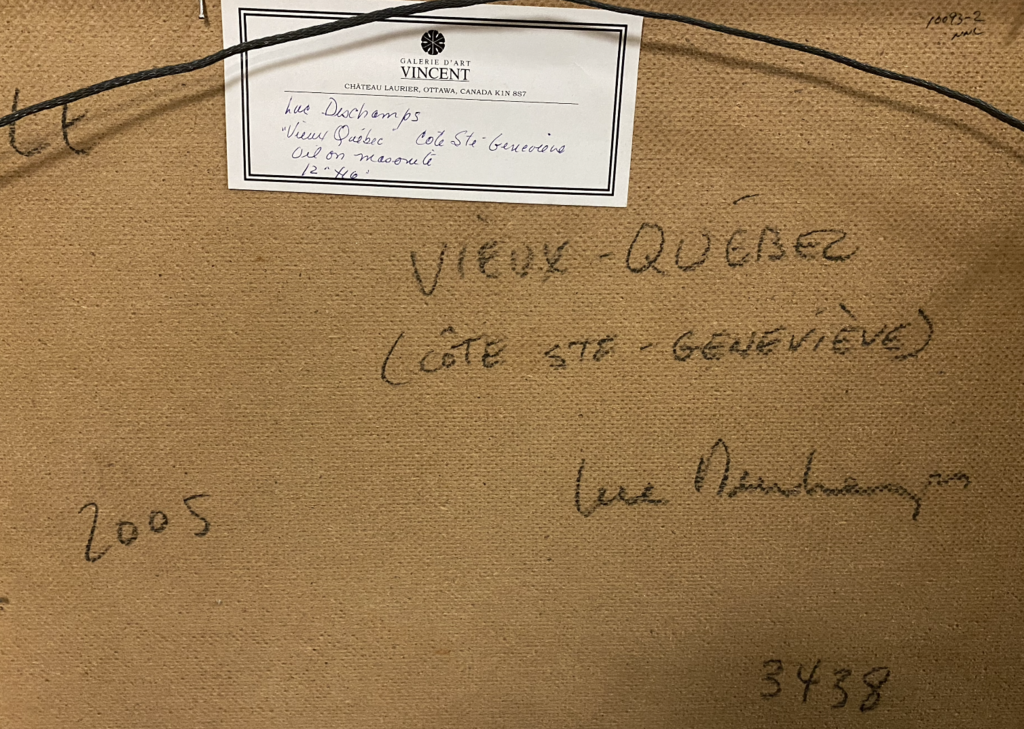 10093-2
GALERIE D'ART
VINCENT
CHÂTEAU LAURIER, OTTAWA, CANADA K1N 8S7
Luc Deschamps
"Vieux Québec Côte Ste-Geneviève
Oil on masonite
12" x16"
VIEUX-QUÉBEC
(CÔTE STE-GENEVIÈVE)
Luc Deschamps
2005
3438